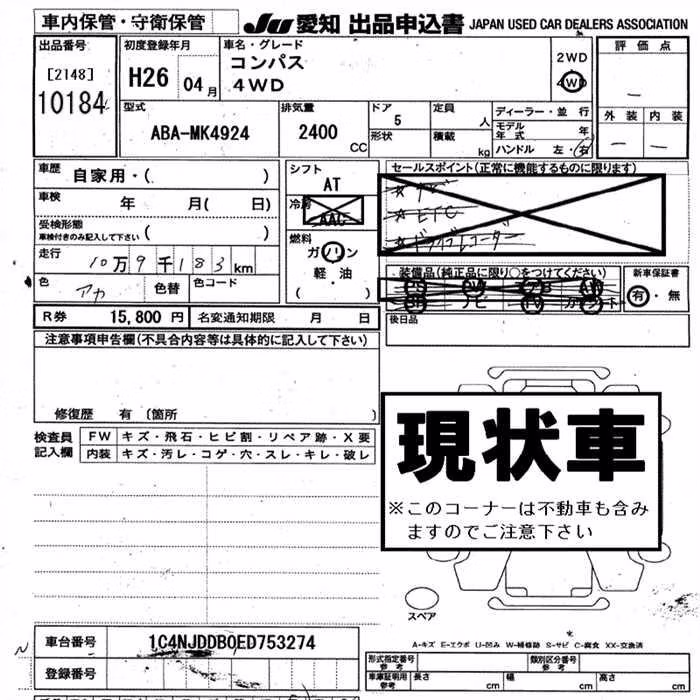 車内保管・守衛保管
JU 愛知 出品申込書 JAPAN USED CAR DEALERS ASSOCIATION
出品番号
[2148]
10184
初度登録年月
H26 04 月
車名・グレード
コンパス
4WD
2WD
4WD
評価点
－
外装 内装
－ －
型式
ABA-MK4924
排気量
2400 CC
ドア
5
形状
定員
人
積載
kg
ディーラー・並行
モデル年式 年
ハンドル 左・右
車歴
自家用・( )
車検 年 月( 日)
受検形態
車検付きのみ記入して下さい ( )
走行 10万9千183km
色 アカ 色替 色コード
シフト
AT
冷房
AAC
燃料
ガソリン
軽・油
( )
セールスポイント(正常に機能するものに限ります)
☆ ナビ
☆ ETC
☆ ドライブレコーダー
装備品(純正品に限り○をつけてください)
新車保証書
有・無
R券 15,800 円 名変通知期限 月 日
後日品
注意事項申告欄(不具合内容等は具体的に記入して下さい)
修復歴 有 (箇所 )
検査員記入欄
FW キズ・飛石・ヒビ割・リペア跡・X要
内装 キズ・汚レ・コゲ・穴・スレ・キレ・破レ
現状車
※このコーナーは不動車も含み
ますのでご注意下さい
スペア
A-キズ E-エクボ U-凹み W-補修跡 S-サビ C-腐食 XX-交換済
車台番号 1C4NJDDB0ED753274
登録番号
形式指定番号 参考
類別区分番号 参考
車庫証明用 参考 長さ cm 幅 cm 高さ cm